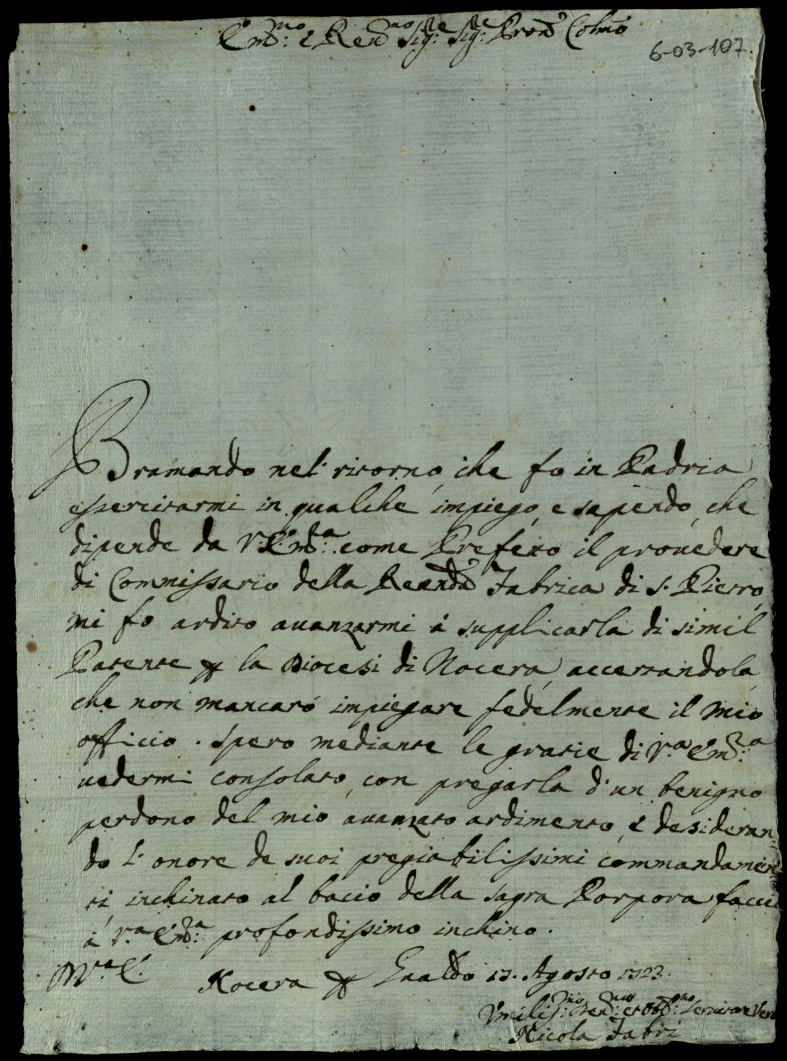 Em.mo e Rev.mo Sig.re Sig.re Pron. Colmo
6-03-107.
Bramando nel ritorno, che fo in Padria
essercitarmi in qualche impiego, e sapendo, che
dipende da V. Em.za come Prefetto il provedere
di Commissario della Reverda Fabrica di S. Pietro,
mi fo ardito avanzarmi à supplicarla di simil
Patente per la Diocesi di Nocera, accertandola
che non mancarò impiegare fedelmente il mio
officio. Spero mediante le gratie di V.a Em.za
vedermi consolato, con pregarla d'un benigno
perdono del mio avanzato ardimento, e desideran-
do l'onore de suoi pregiabilissimi commandamen
ti inchinato al bacio della sagra Porpora faccio
à V.a Em.za profondissimo inchino.
D V.a E.
Nocera per Gualdo 13. Agosto 1723.
Umilis.mo Dev.mo et Obb.mo Servitore Vero
Nicola Fabri